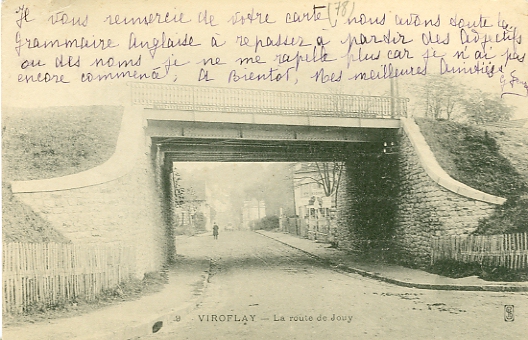 Je vous remercie de votre carte, nous avons toute la (78)
Grammaire Anglaise à repasser à partir des adjectifs
ou des noms je ne me rapelle plus car je n'ai pas
encore commencé, A Bientôt, Mes meilleures Amitiés
2 VIROFLAY — La route de Jouy